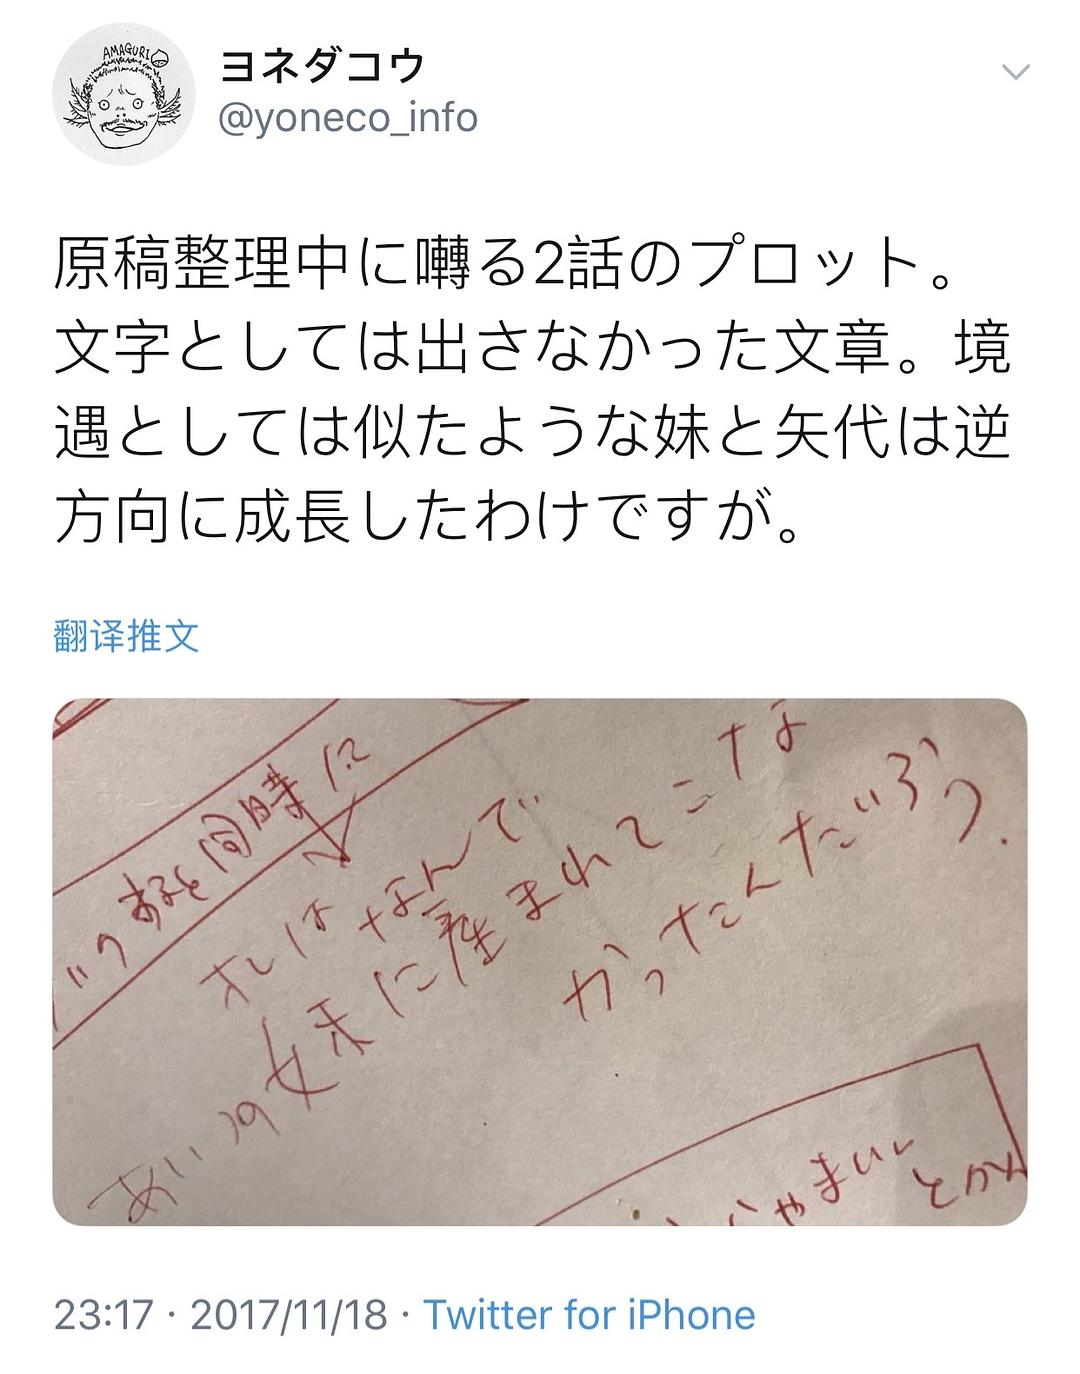 AMAGURI
ヨネダコウ
@yoneco_info
原稿整理中に囀る2話のプロット。
文字としては出さなかった文章。境
遇としては似たような妹と矢代は逆
方向に成長したわけですが。
翻译推文
と同時に
オレはなんで
あいつの妹に産まれてこな
かったんだろう.
とか
23:17 · 2017/11/18 · Twitter for iPhone